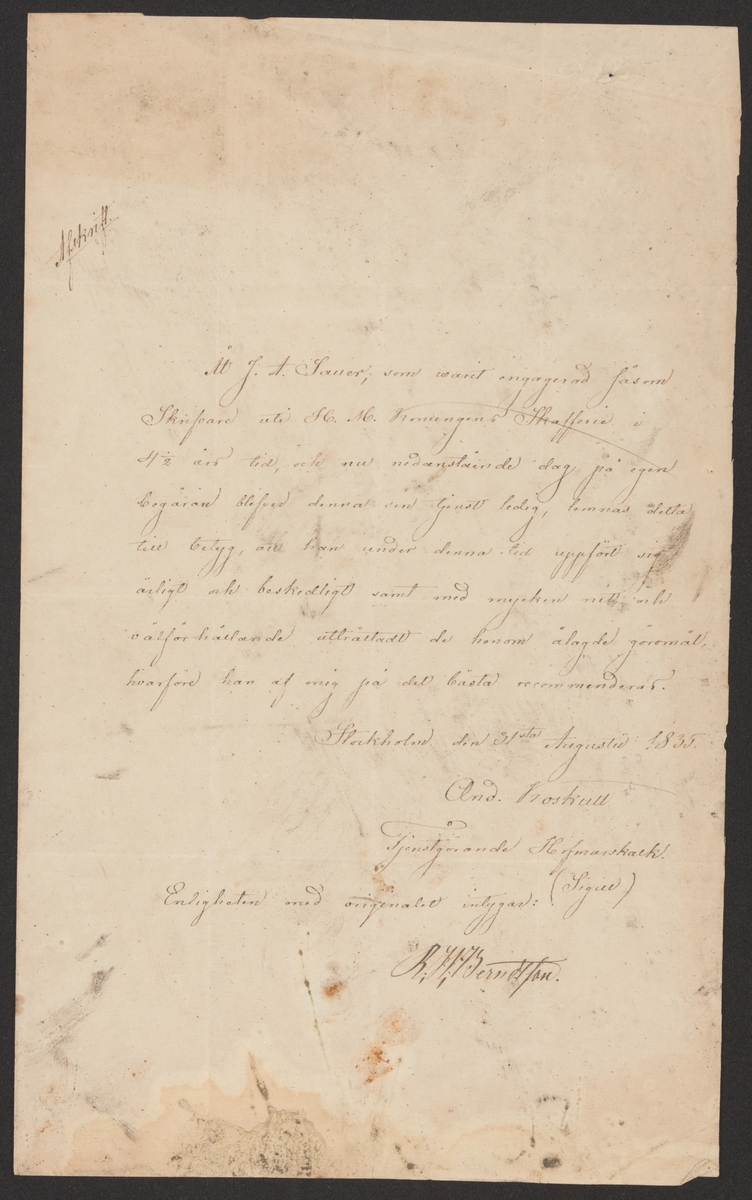 Afskrift.
At J. A. Sauer, som warit engagerad såsom
Skrifvare uti H. M. Konungens Skafferie i
4½ års tid, och nu nedanstående dag på egen
begäran blifvit denna sin tjenst ledig, lemnas detta
till betyg, att han under denna tid uppfört sig
ärligt och beskedligt samt med mycken nit och
välförhållande uträttadt de honom ålagde göromål,
hvarföre han af mig på det bästa recommenderas.
Stockholm den 31sta Augustii 1835.
And. Koskull
Tjenstgörande Hofmarskalk.
(Sigill)
Enligheten med originalet intygar:
R. H. Berndtson.